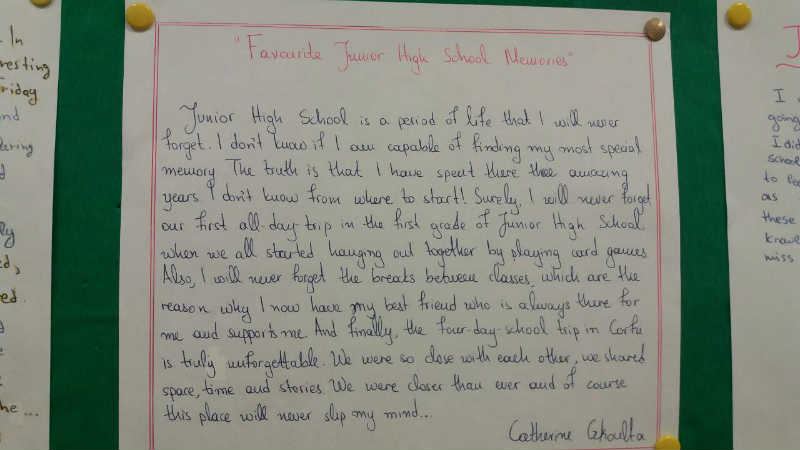 "Favourite Junior High School Memories"
Junior High School is a period of life that I will never
forget. I don't know if I am capable of finding my most special
memory. The truth is that I have spent there three amazing
years. I don't know from where to start! Surely, I will never forget
our first all-day trip in the first grade of Junior High School
when we all started hanging out together by playing card games.
Also, I will never forget the breaks between classes, which are the
reason why I now have my best friend who is always there for
me and supports me. And finally, the four-day-school trip in Corfu
is truly unforgettable. We were so close with each other, we shared
space, time and stories. We were closer than ever and of course
this place will never slip my mind...
Catherine Gkoulta
In
Friday
I
going
I did
school
to
as
these
miss